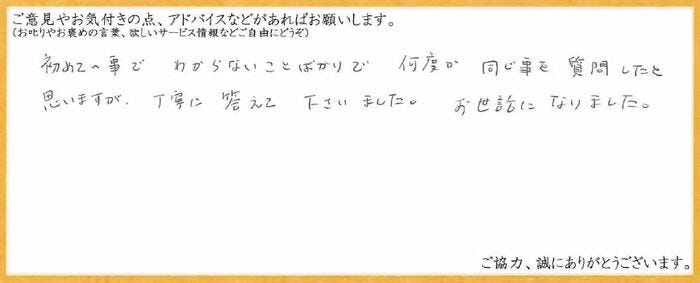 ご意見やお気付きの点、アドバイスなどがあればお願いします。
(お叱りやお褒めの言葉、欲しいサービス情報などご自由にどうぞ)
初めての事で わからないことばかりで 何度か 同じ事を 質問したと
思いますが、丁寧に 答えて 下さいました。 お世話に なりました。
ご協力、誠にありがとうございます。